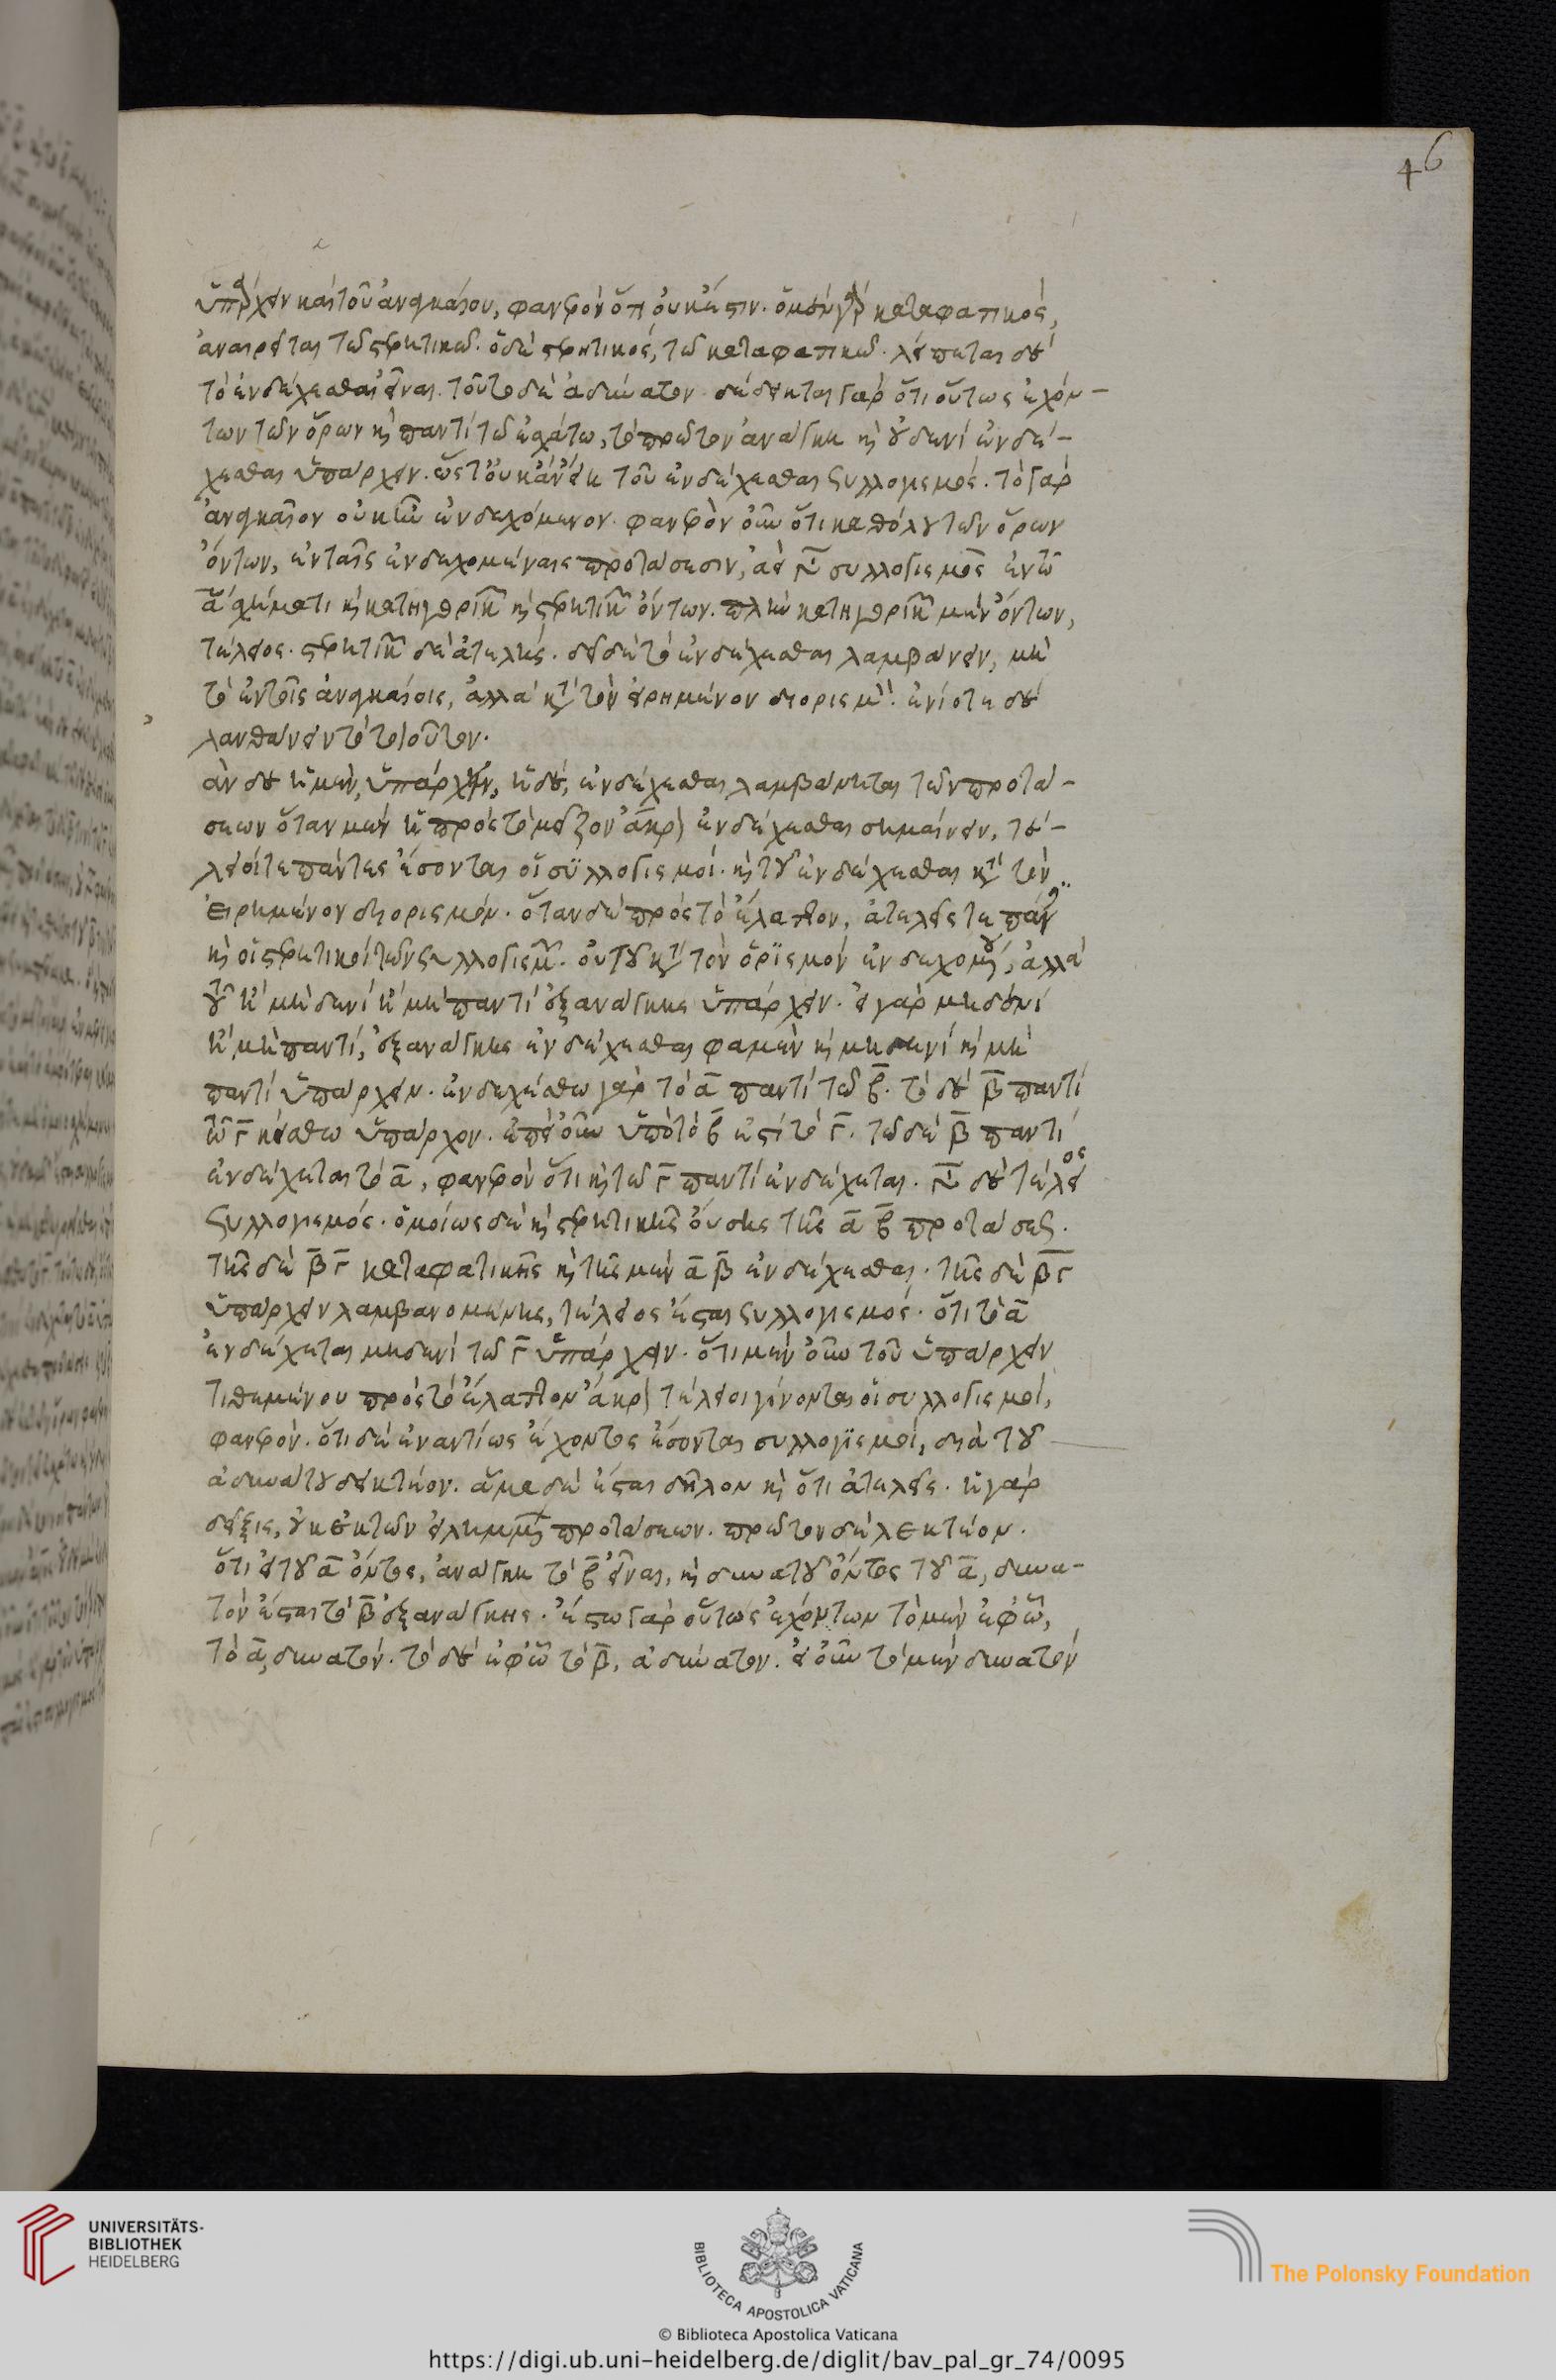 46
ὑπάρχειν καὶ τοῦ ἀναγκαίου, φανερὸν ὅτι οὐκ ἔστιν. ὁ μὲν γὰρ καταφατικὸς,
ἀναιρεῖται τῶ στερητικῶ. ὁ δὲ στερητικὸς, τῶ καταφατικῶ. λείπεται δὴ
τὸ ἐνδέχεσθαι εἶναι. τοῦτο δὲ ἀδύνατον. δέδεικται γὰρ ὅτι οὕτως ἐχόν-
των τῶν ὅρων καὶ παντὶ τῶ ἐσχάτω, τὸ πρῶτον ἀνάγκη καὶ οὐδενὶ ἐνδέ-
χεσθαι ὑπάρχειν. ὥστ' οὐκ ἂν εἴη τοῦ ἐνδέχεσθαι συλλογισμός. τὸ γὰρ
ἀναγκαῖον οὐκ ἦν ἐνδεχόμενον. φανερὸν οὖν ὅτι καθόλου τῶν ὅρων
ὄντων, ἐν ταῖς ἐνδεχομέναις προτάσεσιν, ἀεὶ γίνεται συλλογισμὸς ἐν τῶ
α σχήματι καὶ κατηγορικῶν καὶ στερητικῶν ὄντων. πλὴν κατηγορικῶν μὲν ὄντων,
τέλειος. στερητικῶν δὲ ἀτελής. δεῖ δὲ τὸ ἐνδέχεσθαι λαμβάνειν, μὴ
τὸ ἐν τοῖς ἀναγκαίοις, ἀλλὰ κατὰ τὸν εἰρημένον διορισμόν. ἐνίοτε δὲ
λανθάνειν τὸ τοιοῦτον.
ἂν δὲ ἡ μὲν, ὑπάρχειν, ἡ δὲ, ἐνδέχεσθαι λαμβάνηται τῶν προτά-
σεων ὅταν μὲν ἡ πρὸς τὸ μεῖζον ἄκρον ἐνδέχεσθαι σημαίνειν, τέ-
λειοί τε πάντες ἔσονται οἱ συλλογισμοί. καὶ τοῦ ἐνδέχεσθαι κατὰ τὸν
εἰρημένον διορισμόν. ὅταν δὲ πρὸς τὸ ἔλαττον, ἀτελεῖς τε πάντες
καὶ οἱ στερητικοὶ τῶν συλλογισμῶν. οὐ τοῦ κατὰ τὸν ὁρισμὸν ἐνδεχομένου, ἀλλὰ
τοῦ ἢ μηδενὶ ἢ μὴ παντὶ ἐξ ἀνάγκης ὑπάρχειν. εἰ γὰρ μηδενὶ
ἢ μὴ παντὶ, ἐξ ἀνάγκης ἐνδέχεσθαι φαμὲν καὶ μηδενὶ καὶ μὴ
παντὶ ὑπάρχειν. ἐνδεχέσθω γὰρ τὸ α παντὶ τῶ β. τὸ δὲ β παντὶ
τῶ γ κείσθω ὑπάρχον. ἐπεὶ οὖν ὑπὸ τὸ β ἐστὶ τὸ γ. τῶ δὲ β παντὶ
ἐνδέχεται τὸ α, φανερὸν ὅτι καὶ τῶ γ παντὶ ἐνδέχεται. γίνεται δὴ τέλειος
συλλογισμός. ὁμοίως δὲ καὶ στερητικῆς οὔσης τῆς α β προτάσεως.
τῆς δὲ β γ καταφατικῆς καὶ τῆς μὲν α β ἐνδέχεσθαι. τῆς δὲ β γ
ὑπάρχειν λαμβανομένης, τέλειος ἔσται συλλογισμός. ὅτι τὸ α
ἐνδέχεται μηδενὶ τῶ γ ὑπάρχειν. ὅτι μὲν οὖν τοῦ ὑπάρχειν
τιθεμένου πρὸς τὸ ἔλαττον ἄκρον τέλειοι γίνονται οἱ συλλογισμοὶ,
φανερόν. ὅτι δὲ ἐναντίως ἔχοντος ἔσονται συλλογισμοὶ, διὰ τοῦ
ἀδυνάτου δεικτέον. ἅμα δὲ ἔσται δῆλον καὶ ὅτι ἀτελεῖς. ἡ γὰρ
δεῖξις, οὐκ ἐκ τῶν εἰλημμένων προτάσεων. πρῶτον δὲ λεκτέον.
ὅτι εἰ τοῦ α ὄντος, ἀνάγκη τὸ β εἶναι, καὶ δυνατοῦ ὄντος τοῦ α, δυνα-
τὸν ἔσται τὸ β ἐξ ἀνάγκης. ἔστω γὰρ οὕτως ἐχόντων τὸ μὲν ἐφ' ὧ,
τὸ α, δυνατόν. τὸ δὲ ἐφ' ὧ τὸ β, ἀδύνατον. εἰ οὖν τὸ μὲν δυνατὸν
UNIVERSITÄTS-
BIBLIOTHEK
HEIDELBERG
BIBLIOTECA APOSTOLICA VATICANA
The Polonsky Foundation
© Biblioteca Apostolica Vaticana
https://digi.ub.uni-heidelberg.de/diglit/bav_pal_gr_74/0095